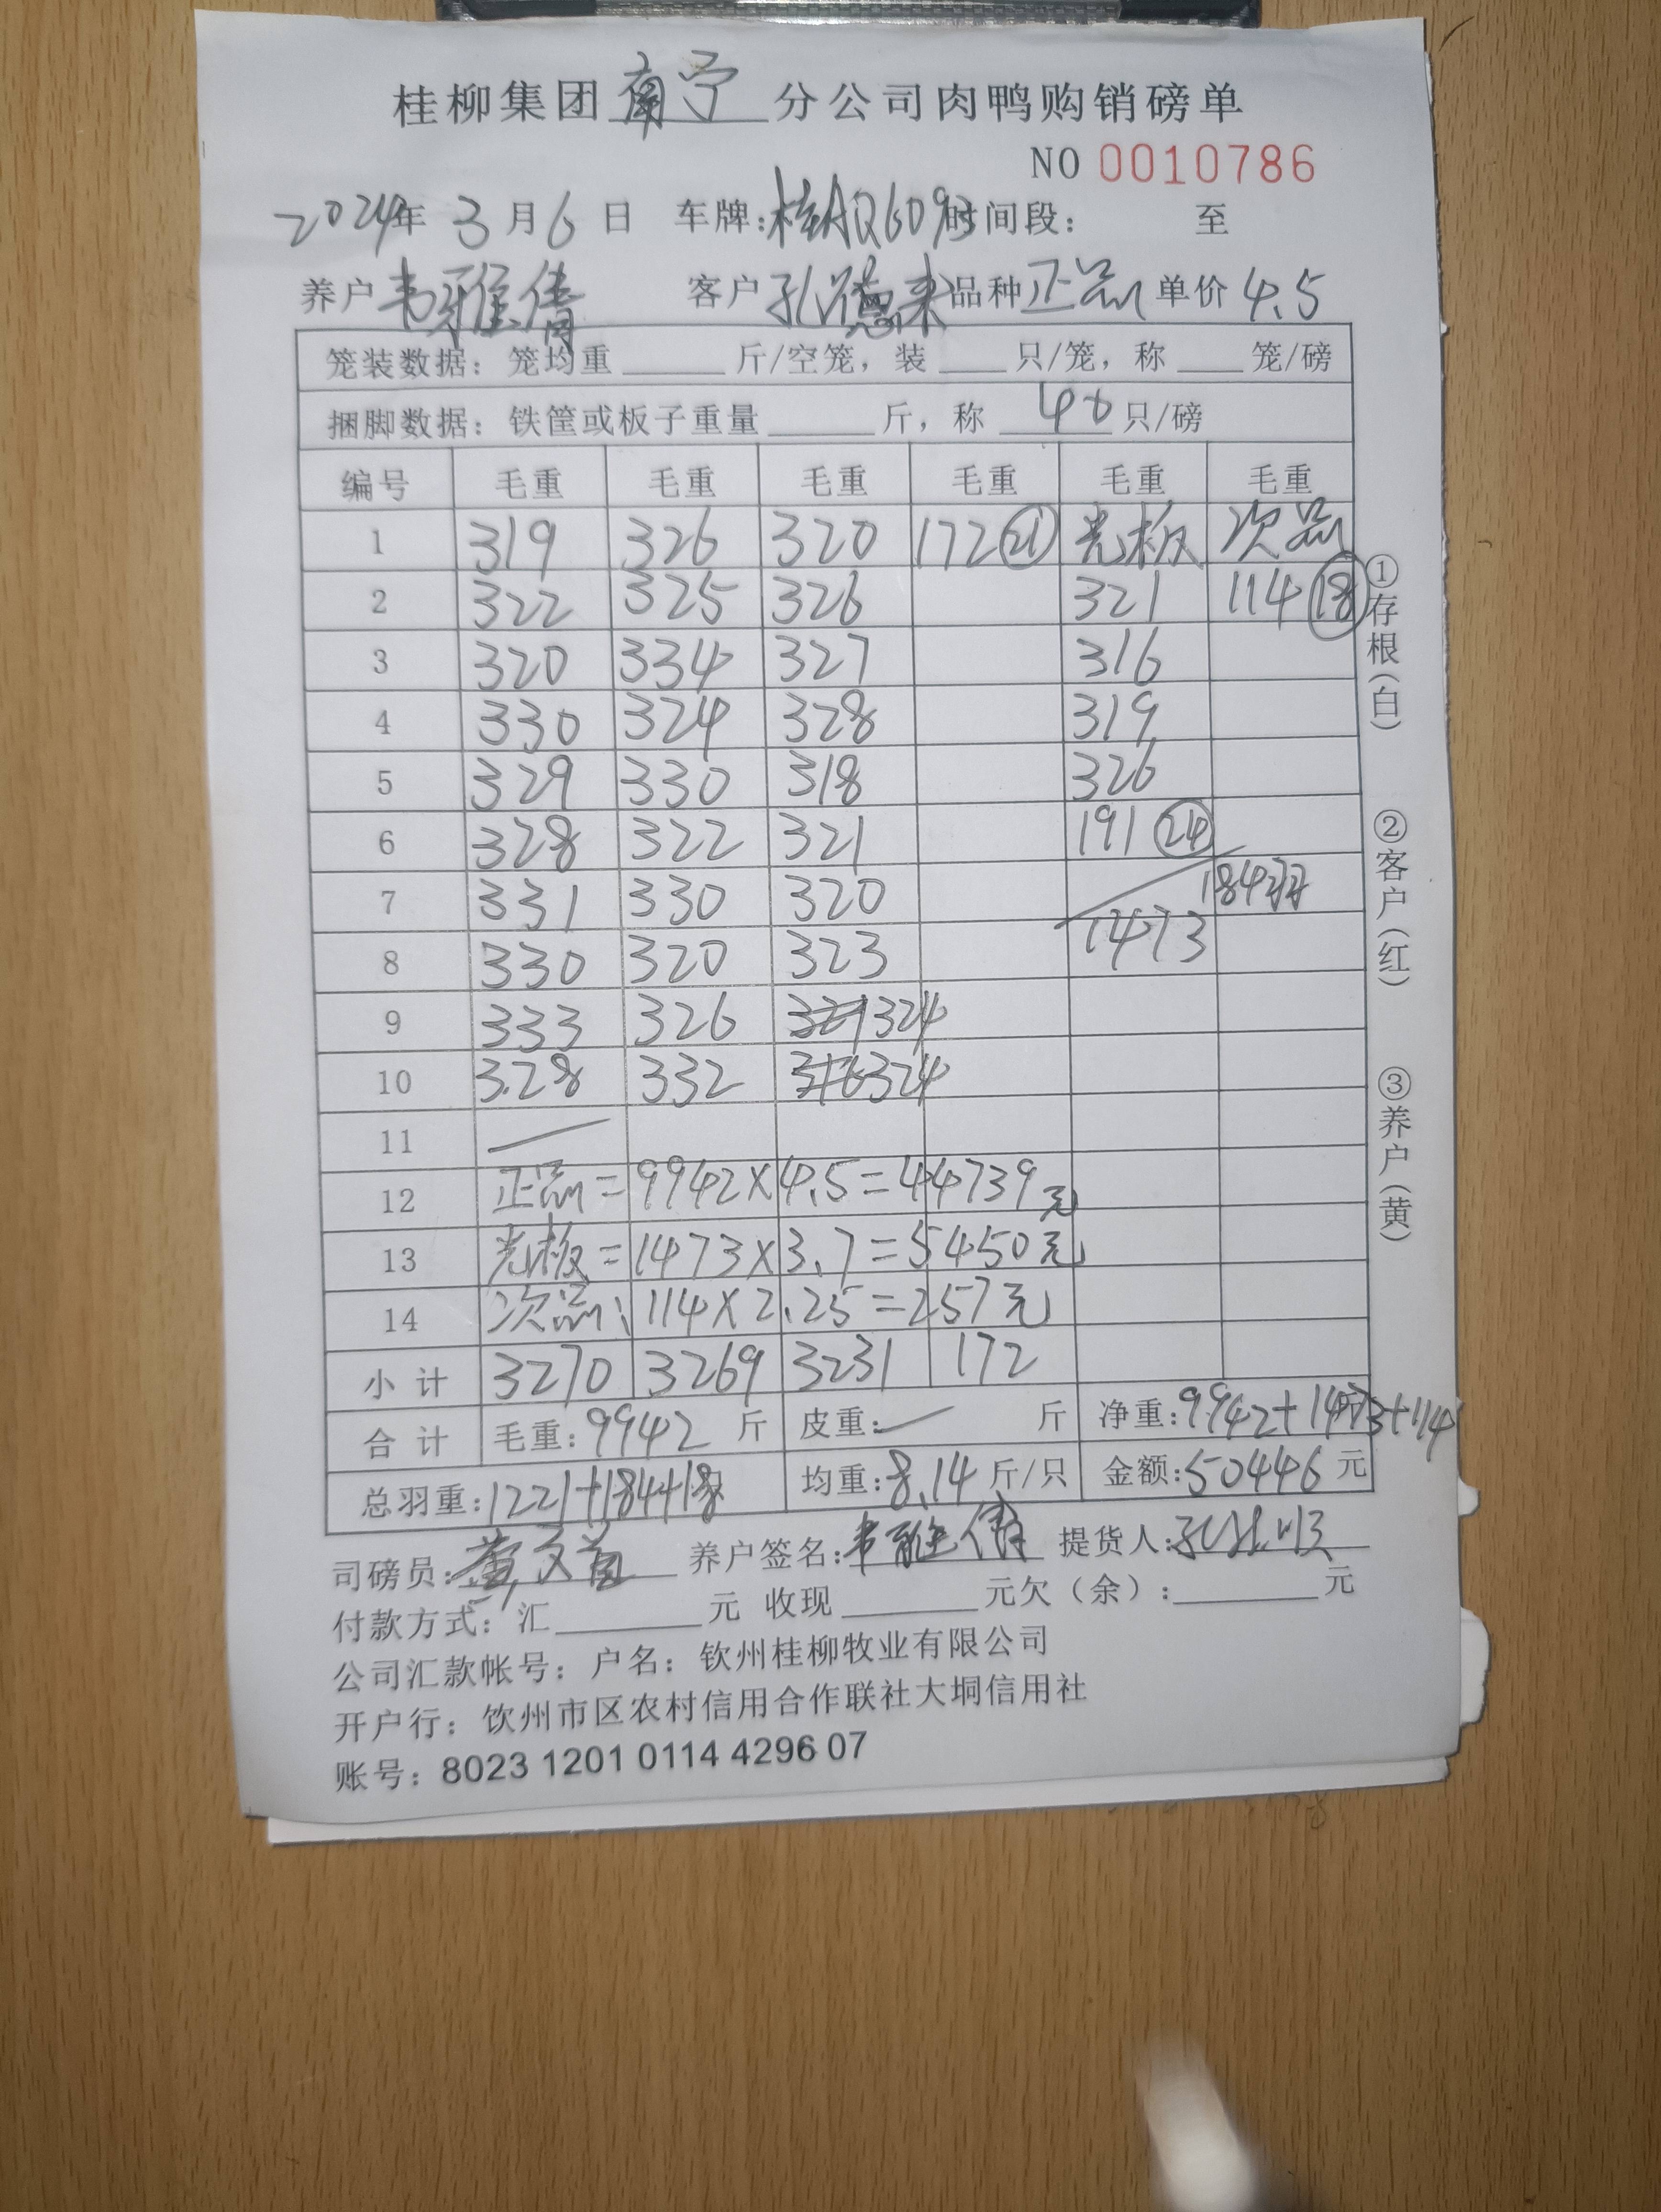 桂柳集团南宁分公司肉鸭购销磅单
NO 0010786
2024年3月6日 车牌:桂AQ6093时间段: 至
养户韦雅倩 客户孔德来品种正品单价4.5
笼装数据: 笼均重 斤/空笼, 装 只/笼, 称 笼/磅
捆脚数据: 铁筐或板子重量 斤, 称 40 只/磅
编号 毛重 毛重 毛重 毛重 毛重 毛重
1 319 326 320 172 ㉑ 光板 次品
2 322 325 326 321 114 ⑱
3 320 334 327 316
4 330 324 328 319
5 329 330 318 326
6 328 322 321 191 ㉔
7 331 330 320 184羽
8 330 320 323 1473
9 333 326 324
10 328 332 324
11
12 正品=9942×4.5=44739元
13 光板=1473×3.7=5450元
14 次品:114×2.25=257元
小计 3270 3269 3231 172
合计 毛重:9942 斤 皮重: 斤 净重:9942+1473+114
总羽重:1221+184+18 均重:8.14斤/只 金额:50446元
司磅员: 养户签名: 提货人:
付款方式: 汇 元 收现 元欠(余): 元
公司汇款帐号: 户名: 钦州桂柳牧业有限公司
开户行: 饮州市区农村信用合作联社大垌信用社
账号: 8023 1201 0114 4296 07
①存根(白) ②客户(红) ③养户(黄)